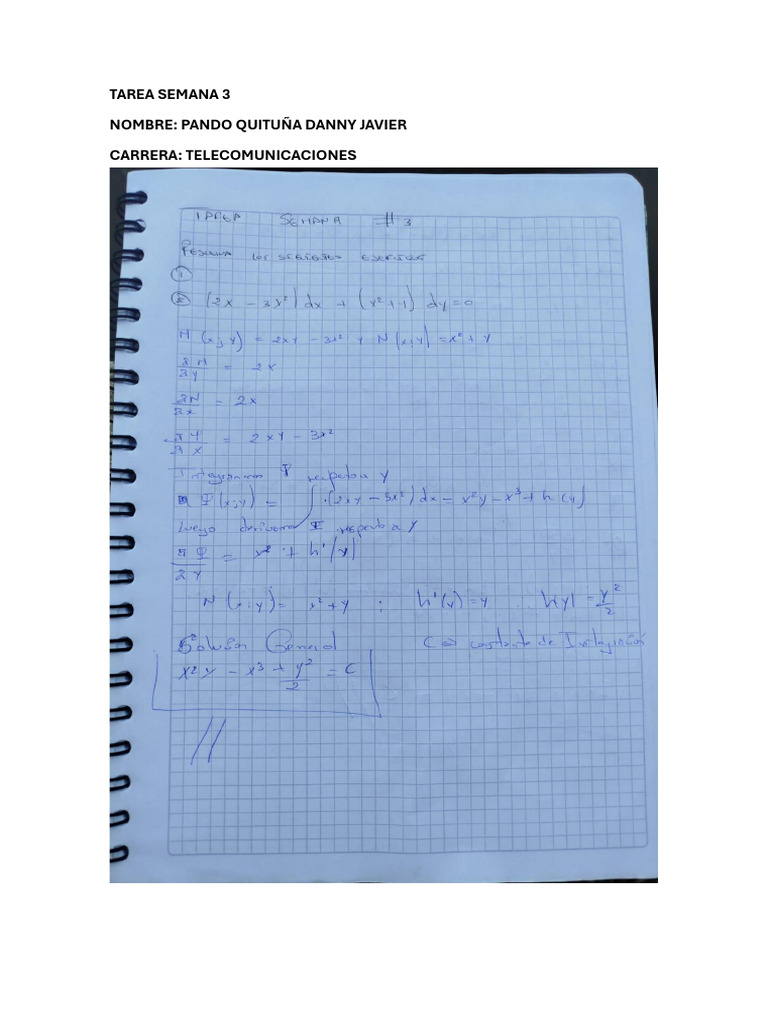 TAREA SEMANA 3
NOMBRE: PANDO QUITUÑA DANNY JAVIER
CARRERA: TELECOMUNICACIONES
SEMANA # 3
los ejercicios
①
② (2x - 3x²) dx + (x² + 1) dy = 0
M (x; y) = 2xy - 3x² y N (x; y) = x² + y
∂M/∂y = 2x
∂N/∂x = 2x
∂Ψ/∂x = 2xy - 3x²
Integramos Ψ respeto a y
Ψ (x; y) = ∫ (2xy - 3x²) dx = x²y - x³ + h (y)
Luego derivamos Ψ respeto a y
∂Ψ/∂y = x² + h' (y)
N (x; y) = x² + y ; h' (y) = y h(y) = y²/2
Solución General C => constante de Integración
x²y - x³ + y²/2 = C
//